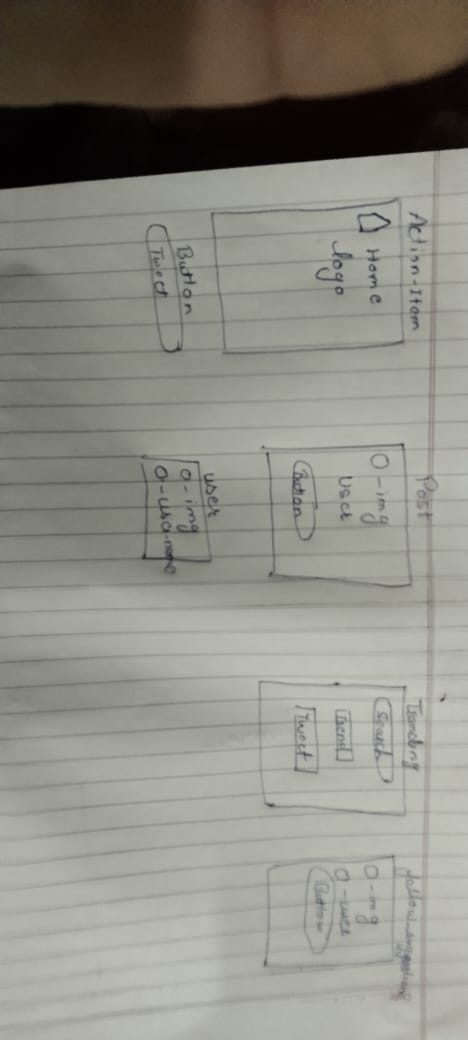 Action-Item
Home
logo
Button
Tweet
Post
O-img
user
Button
user
O-img
O-username
Trending
Search
Trend
Tweet
O-img
O-user
Button